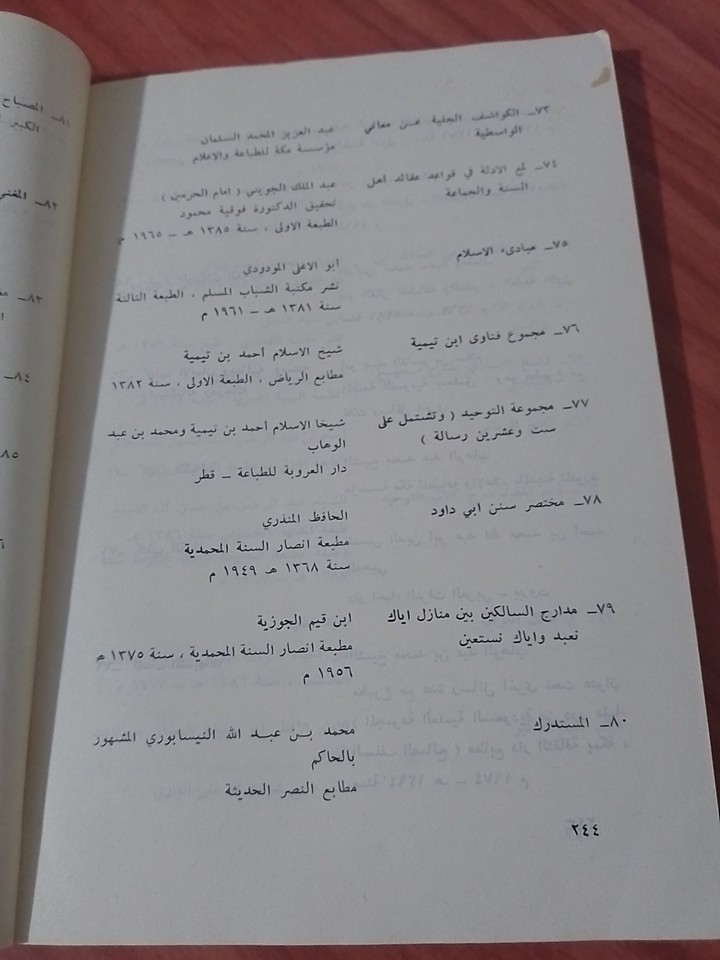 ٧٣ـ الكواشف الجلية عن معاني
الواسطية
عبد العزيز المحمد السلمان
مؤسسة مكة للطباعة والاعلام
٧٤ـ لمع الادلة في قواعد عقائد اهل
السنة والجماعة
عبد الملك الجويني ( امام الحرمين )
تحقيق الدكتورة فوقية محمود
الطبعة الاولى ، سنة ١٣٨٥ هـ ـ ١٩٦٥ م
٧٥ـ مبادىء الاسلام
أبو الاعلى المودودي
نشر مكتبة الشباب المسلم ، الطبعة الثالثة
سنة ١٣٨١ هـ ـ ١٩٦١ م
٧٦ـ مجموع فتاوى ابن تيمية
شيخ الاسلام أحمد بن تيمية
مطابع الرياض ، الطبعة الاولى ، سنة ١٣٨٢
٧٧ـ مجموعة التوحيد ( وتشتمل على
ست وعشرين رسالة )
شيخا الاسلام أحمد بن تيمية ومحمد بن عبد
الوهاب
دار العروبة للطباعة ـ قطر
٧٨ـ مختصر سنن ابي داود
الحافظ المنذري
مطبعة انصار السنة المحمدية
سنة ١٣٦٨ هـ ١٩٤٩ م
٧٩ـ مدارج السالكين بين منازل اياك
نعبد واياك نستعين
ابن قيم الجوزية
مطبعة انصار السنة المحمدية ، سنة ١٣٧٥ هـ
١٩٥٦ م
٨٠ـ المستدرك
محمد بن عبد الله النيسابوري المشهور
بالحاكم
مطابع النصر الحديثة
٢٤٤
٨١ـ المصباح
الكبير
٨٢ـ المغني
٨٣ـ
٨٤ـ